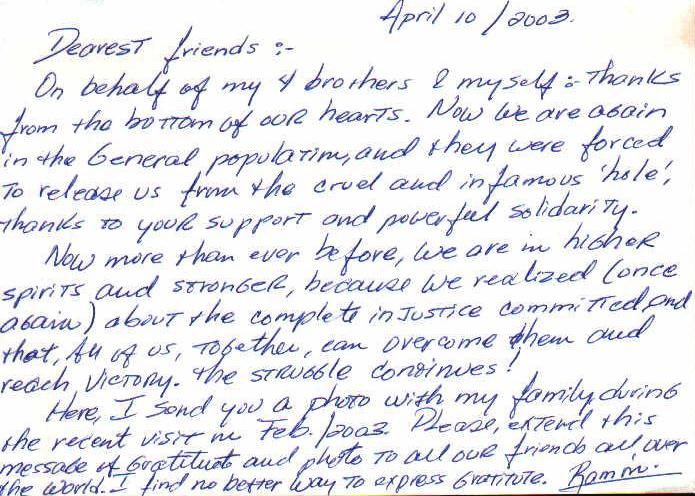 April 10/2003.
Dearest friends:-
On behalf of my 4 brothers & myself:- thanks
from the bottom of our hearts. Now we are again
in the General population, and they were forced
to release us from the cruel and infamous 'hole',
thanks to your support and powerful solidarity.
Now more than ever before, we are in higher
spirits and stronger, because we realized (once
again) about the complete injustice committed, and
that, All of us, together, can overcome them and
reach Victory. The struggle continues!
Here, I send you a photo with my family during
the recent visit in Feb./2003. Please, extend this
message of Gratitude and photo to all our friends all over
the world. I find no better way to express Gratitute. Ramón.